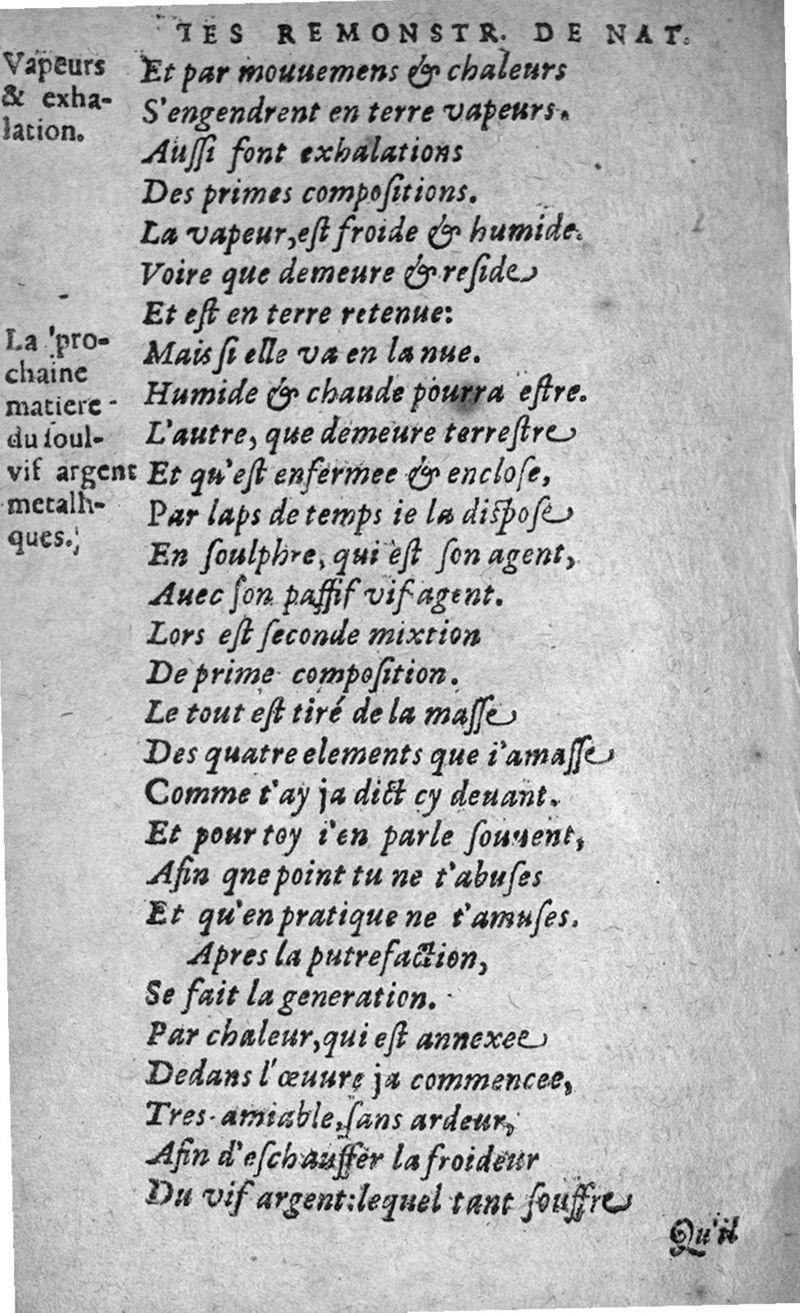 LES REMONSTR. DE NAT.
Vapeurs
& exha-
lation.
Et par mouuemens & chaleurs
S'engendrent en terre vapeurs.
Auſſi font exhalations
Des primes compoſitions.
La vapeur, eſt froide & humide.
Voire que demeure & reſide
Et eſt en terre retenue:
Mais ſi elle va en la nue.
Humide & chaude pourra eſtre.
L'autre, que demeure terreſtre
Et qu'eſt enfermee & encloſe,
Par laps de temps ie la diſpoſe
En ſoulphre, qui eſt ſon agent,
Auec ſon paſſif vif agent.
Lors eſt ſeconde mixtion
De prime compoſition.
Le tout eſt tiré de la maſſe
Des quatre elements que i'amaſſe
Comme t'ay ja dict cy deuant.
Et pour toy i'en parle ſouuent,
Afin qne point tu ne t'abuſes
Et qu'en pratique ne t'amuſes.
Apres la putrefaction,
Se fait la generation.
Par chaleur, qui eſt annexee
Dedans l'œuure ja commencee,
Tres-amiable, ſans ardeur,
Afin d'eſchauffer la froideur
Du vif argent: lequel tant ſouffre
Qu'il
La pro-
chaine
matiere
du ſoul-
vif argent
metalli-
ques.